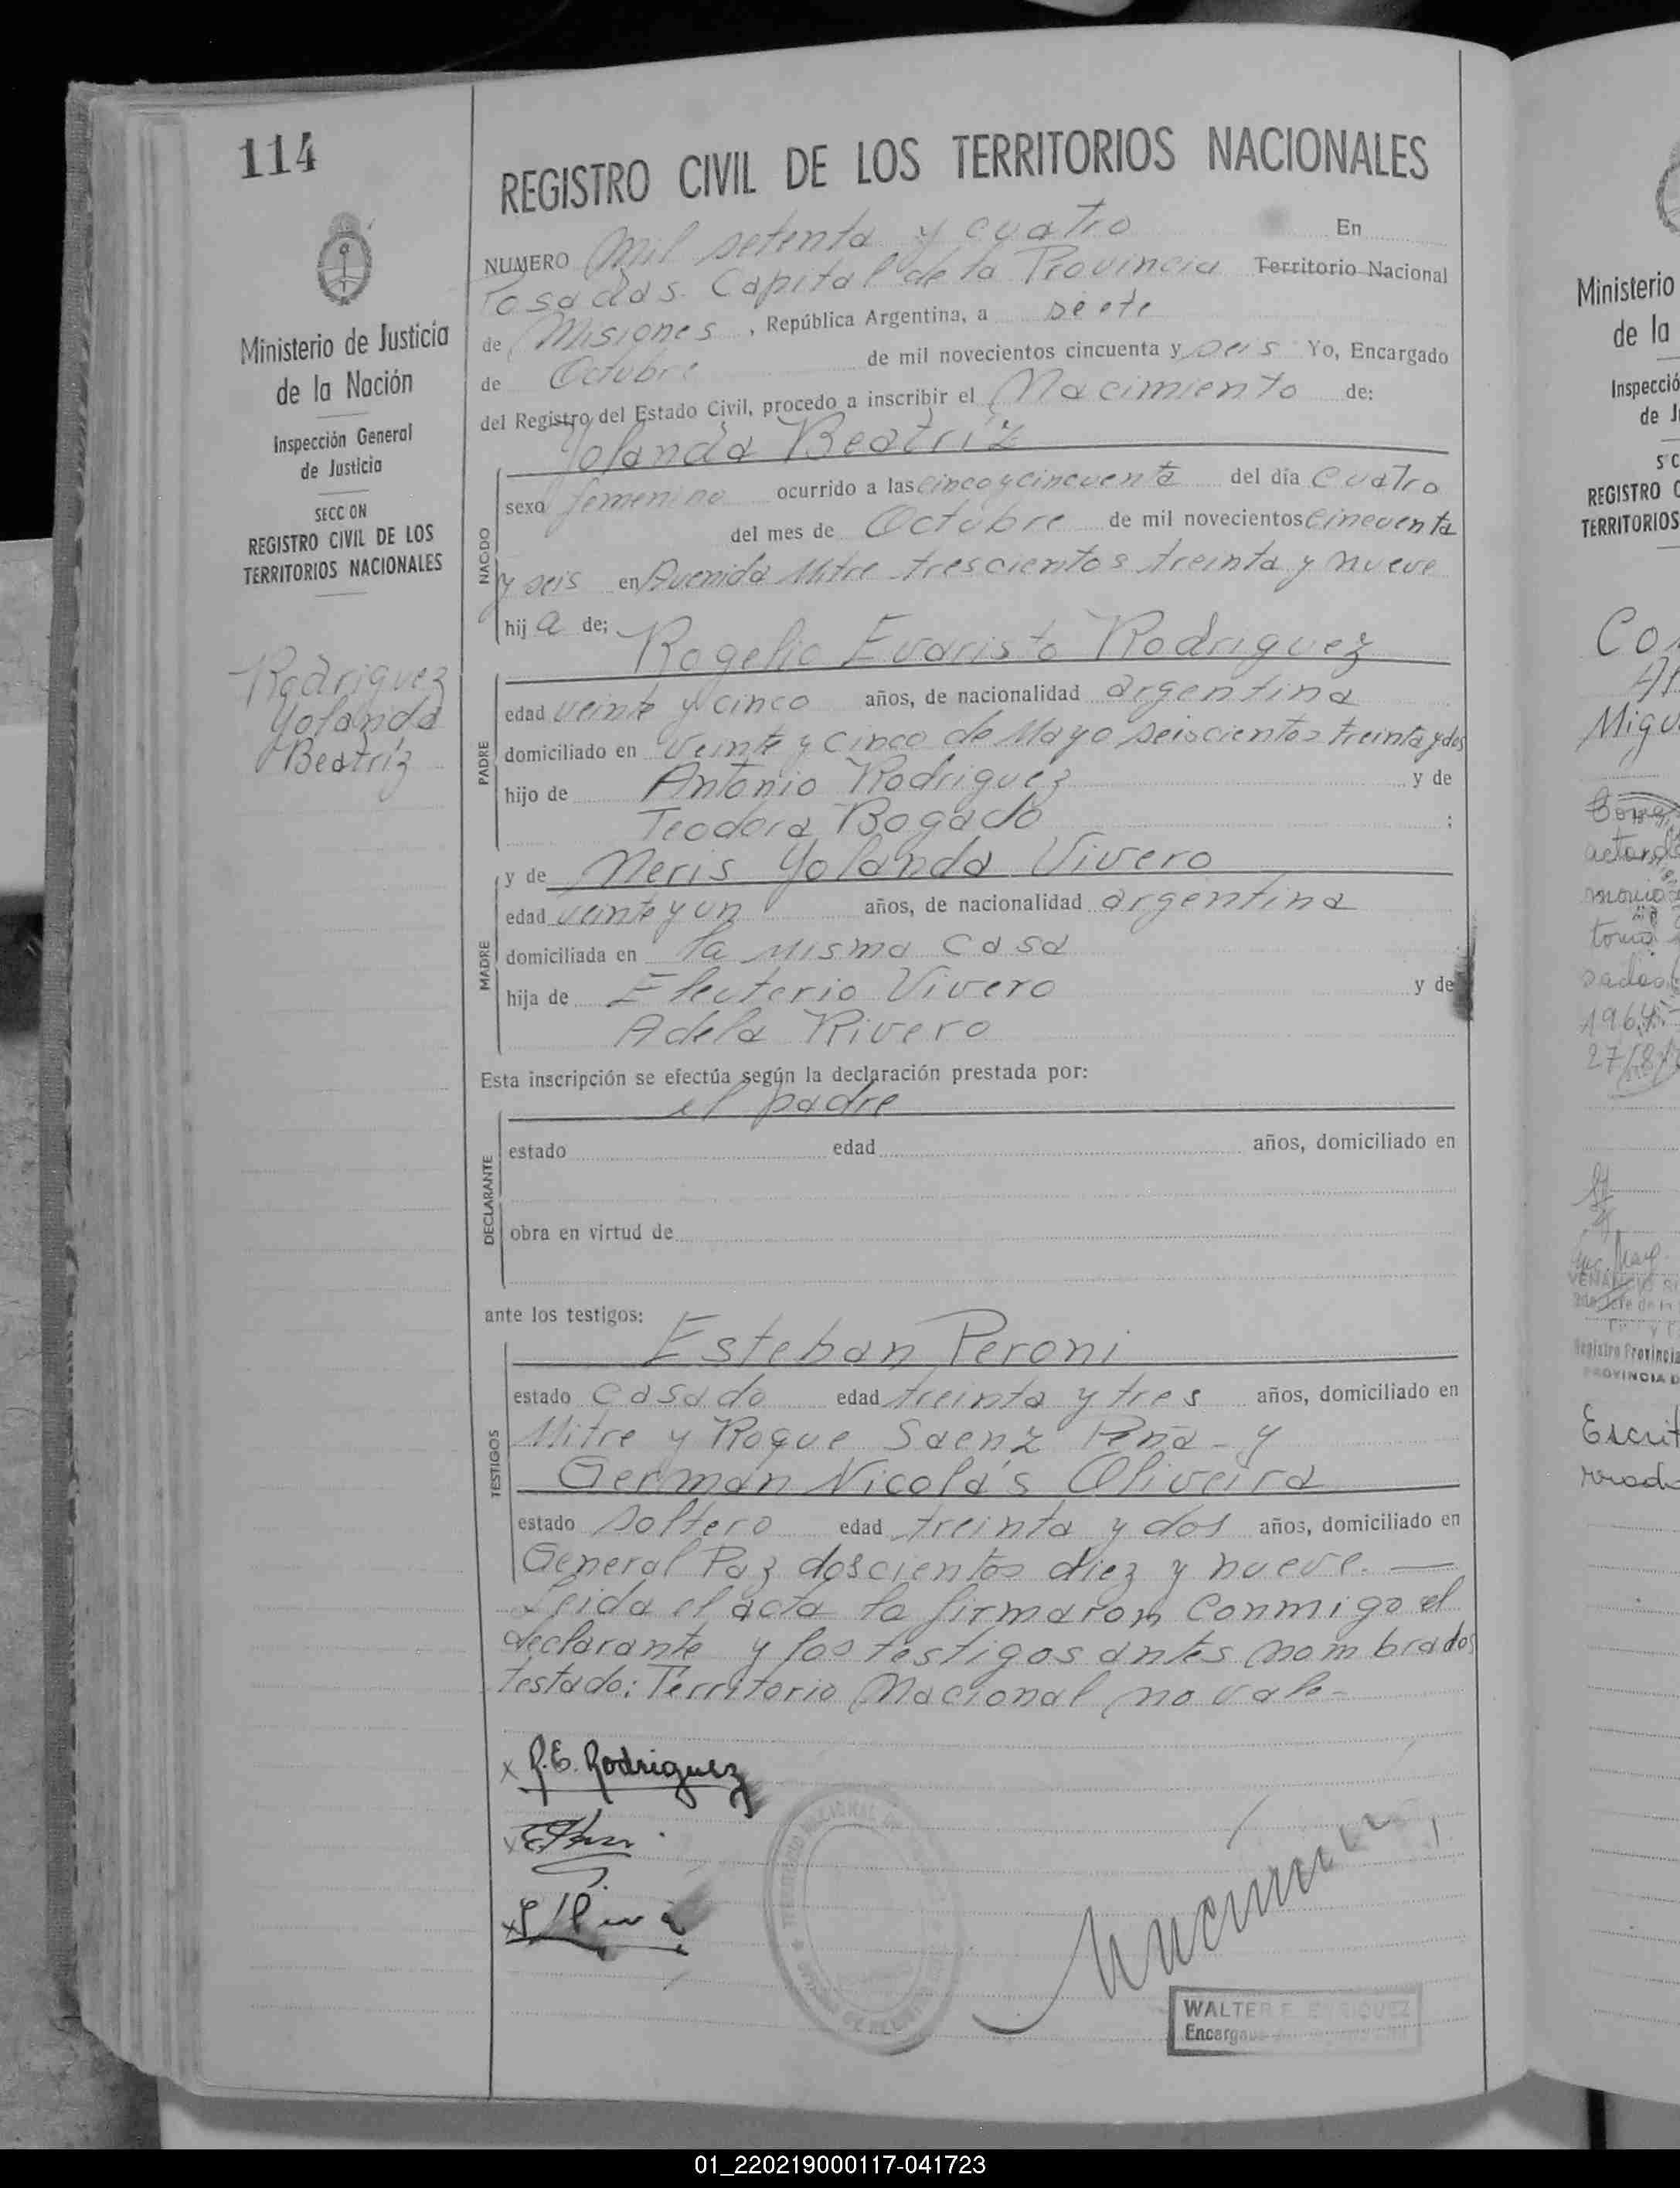 114
REGISTRO CIVIL DE LOS TERRITORIOS NACIONALES
Ministerio de Justicia
de la Nación
Inspección General
de Justicia
SECCION
REGISTRO CIVIL DE LOS
TERRITORIOS NACIONALES
Rodriguez
Yolanda
Beatríz
NUMERO Mil setenta y cuatro En
Posadas. Capital de la Provincia Territorio Nacional
de Misiones, República Argentina, a siete
de Octubre de mil novecientos cincuenta y seis Yo, Encargado
del Registro del Estado Civil, procedo a inscribir el Nacimiento de:
Yolanda Beatríz
NACIDO
sexo femenino ocurrido a las cinco y cincuenta del día cuatro
del mes de Octubre de mil novecientos cincuenta
y seis en Avenida Mitre trescientos treinta y nueve
hija de; Rogelio Evaristo Rodriguez
PADRE
edad veinte y cinco años, de nacionalidad argentina
domiciliado en Veinte y cinco de Mayo seiscientos treinta y dos
hijo de Antonio Rodriguez y de
Teodora Bogado ;
y de Neris Yolanda Vivero
MADRE
edad veinte y un años, de nacionalidad argentina
domiciliada en la misma casa
hija de Eleuterio Vivero y de
Adela Rivero
Esta inscripción se efectúa según la declaración prestada por:
el padre
DECLARANTE
estado edad años, domiciliado en
obra en virtud de
ante los testigos:
Esteban Peroni
TESTIGOS
estado casado edad treinta y tres años, domiciliado en
Mitre y Roque Saenz Peña - y
German Nicolás Oliveira
estado soltero edad treinta y dos años, domiciliado en
General Paz doscientos diez y nueve. —
Leida el acta la firmaron conmigo el
declarante y los testigos antes nombrados
Testado: Territorio Nacional no vale-
x R.E. Rodriguez
x
x
WALTER E. ENRIQUEZ
Encargado
Ministerio
de la
Inspecció
de J
REGISTRO C
TERRITORIOS
Migu
1964
27/8/
Registro Provincia
PROVINCIA D
Escrit
01_220219000117-041723